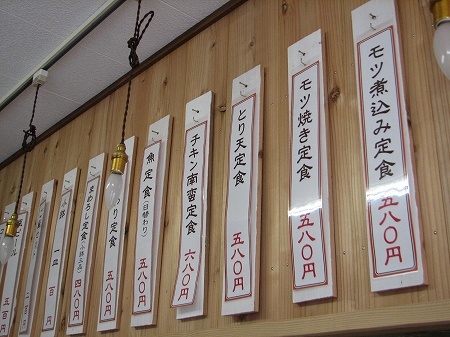 モツ煮込み定食 五八〇円
モツ焼き定食 五八〇円
とり天定食 五八〇円
チキン南蛮定食 六八〇円
魚定食(日替わり) 五八〇円
わり定食 五八〇円
まめろし定食 四八〇円
小鉢 一皿 百円
二百円
五百円